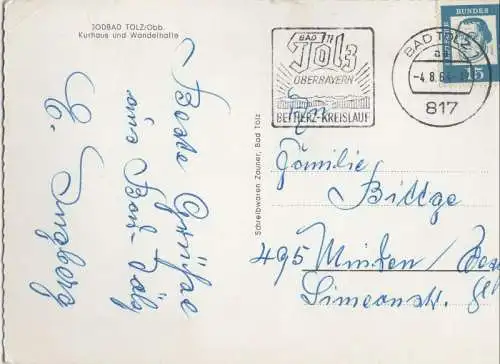 JODBAD TOLZ/Obb.
Kurhaus und Wandelhalle
BAD
Tölz
OBERBAYERN
BEI HERZ-KREISLAUF
BAD TÖLZ 1
-4.8.64
817
BUNDES
15
Schreibwaren Zauner, Bad Tölz
Beste Grüße
aus Bad-Tölz
Ingeborg
An
Familie
Bittge
495 Minden
Simeonstr.